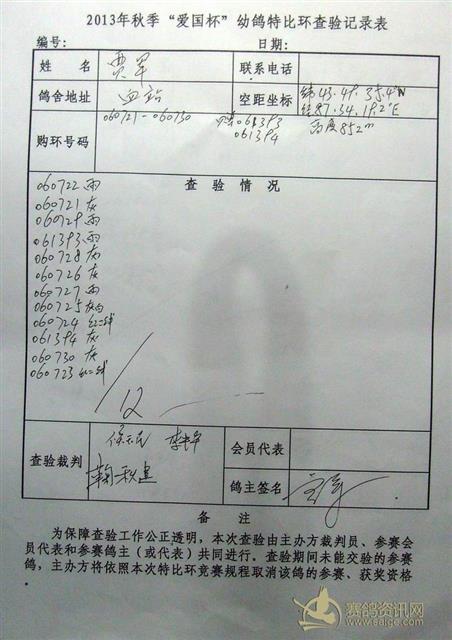 2013年秋季“爱国杯”幼鸽特比环查验记录表
编号: 日期:
姓名 贾军 联系电话
鸽舍地址 血站 空距坐标 纬43.49.35.4"N
经87.34.19.2"E
购环号码 060721-060730 061393 高度852m
061394
查验情况
060722 雨
060721 灰
060729 雨
061393 雨
060728 灰
060726 灰
060727 雨
060725 灰
060724 红二线
061394 灰
060730 灰
060723 红二线
12
查验裁判 会员代表
鸽主签名
备注
为保障查验工作公正透明,本次查验由主办方裁判员、参赛会
员代表和参赛鸽主(或代表)共同进行。查验期间未能交验的参赛
鸽,主办方将依照本次特比环竞赛规程取消该鸽的参赛、获奖资格
赛鸽资讯网
www.saige.com